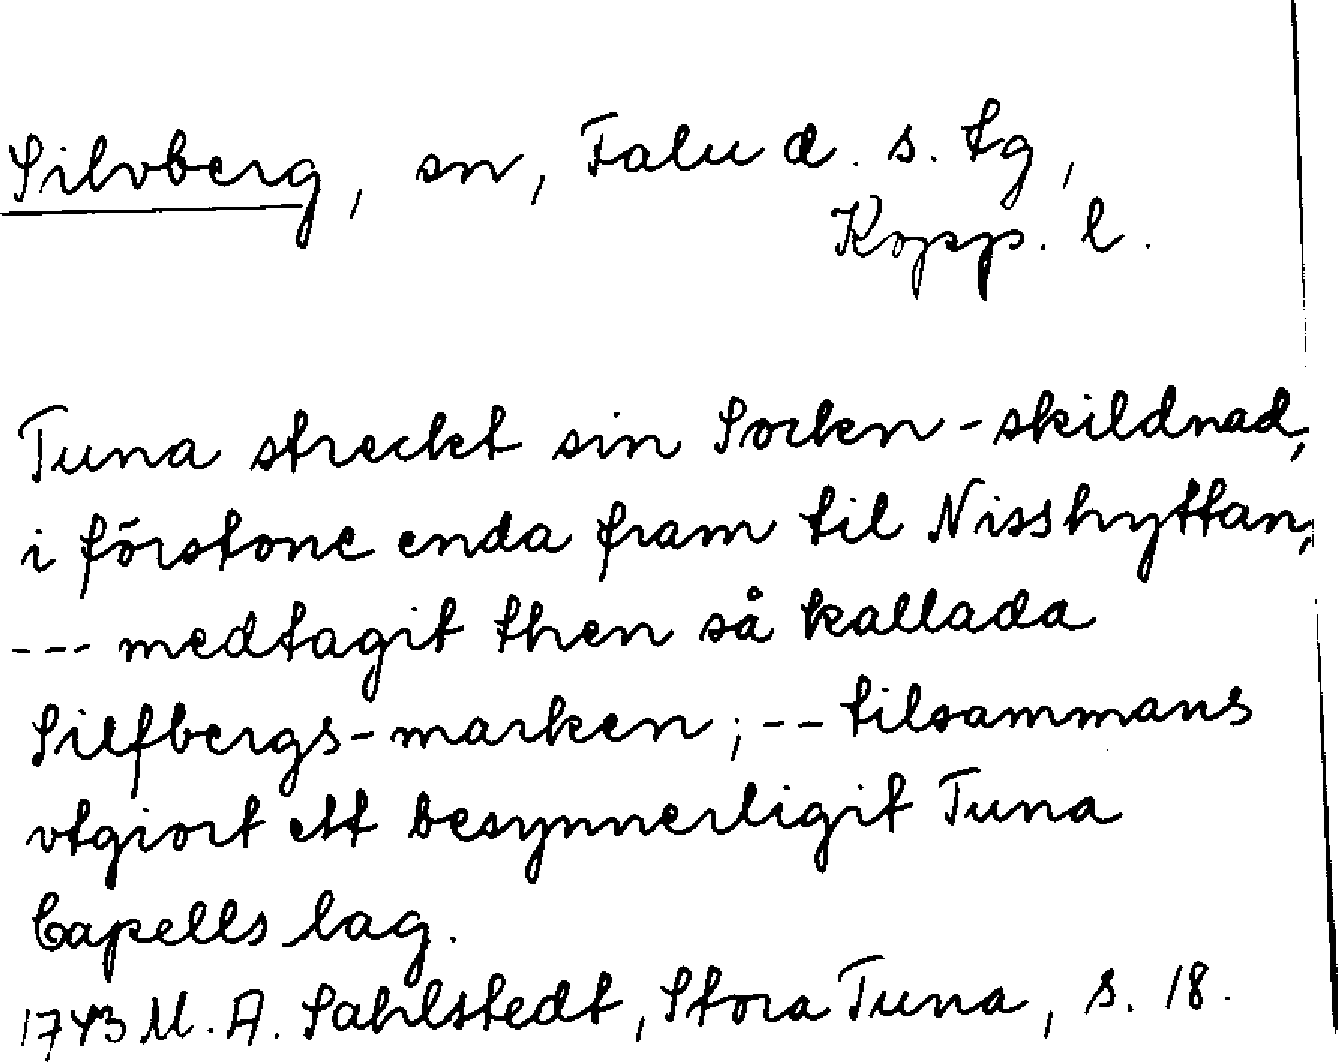 Silvberg, sn, Falu d. s. tg,
Kopp. l.
Tuna streckt sin Socken-skildnad,
i förstone enda fram til Nisshyttan,
--- medtagit then så kallada
Silfbergs-marken; -- tilsammans
vtgiort ett besynnerligit Tuna
Capells lag.
1743 M. A. Sahlstedt, Stora Tuna, s. 18.